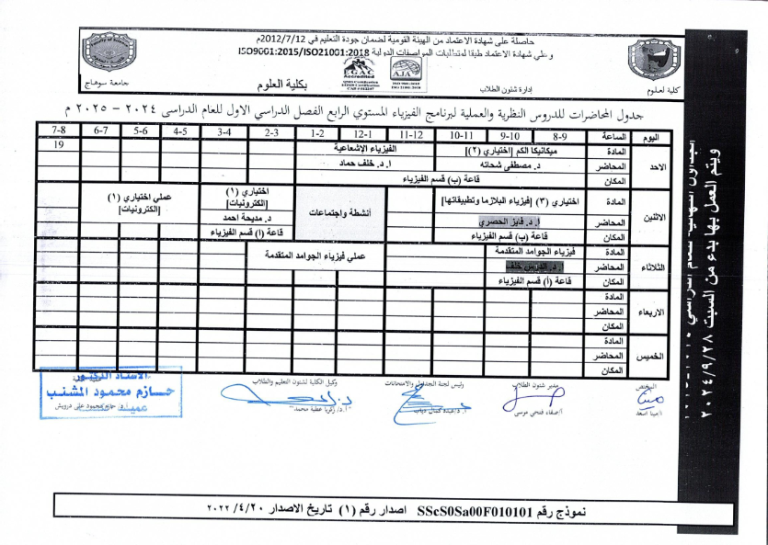 حاصلة على شهادة الاعتماد من الهيئة القومية لضمان جودة التعليم في 2012/7/12م
وعلى شهادة الاعتماد طبقا لمتطلبات المواصفات الدولية ISO9001:2015/ISO21001:2018
جامعة سوهاج
بكلية العلوم
إدارة شئون الطلاب
كلية العلوم
EGAC
AJA
جدول المحاضرات للدروس النظرية والعملية لبرنامج الفيزياء المستوي الرابع الفصل الدراسي الاول للعام الدراسى ٢٠٢٤ - ٢٠٢٥ م
اليوم الساعة 8-9 9-10 10-11 11-12 12-1 1-2 2-3 3-4 4-5 5-6 6-7 7-8
الاحد المادة ميكانيكا الكم [اختياري (٢)] الفيزياء الاشعاعية 19
المحاضر د. مصطفى شحاته د. خلف حماد
المكان قاعة (ب) قسم الفيزياء
الاثنين المادة اختياري (٣) [فيزياء البلازما وتطبيقاتها] أنشطة واجتماعات اختياري (١) [الكترونيات] عملي اختياري (١) [الكترونيات]
المحاضر أ.د. فايز الحصري د. مديحة احمد
المكان قاعة (ب) قسم الفيزياء قاعة (ا) قسم الفيزياء
الثلاثاء المادة فيزياء الجوامد المتقدمة عملي فيزياء الجوامد المتقدمة
المحاضر
المكان قاعة (أ) قسم الفيزياء
الاربعاء المادة
المحاضر
المكان
الخميس المادة
المحاضر
المكان
ويتم العمل بها بدء من السبت ٢٠٢٤/٩/٢٨
المختص
مدير شئون الطلاب
أ/صفاء فتحي موسى
رئيس لجنة الجداول والامتحانات
وكيل الكلية لشئون التعليم والطلاب
أ.د/ زكريا عطية محمد
الاستاذ الدكتور
حازم محمود المشنب
عميد
نموذج رقم SScS0Sa00F010101 اصدار رقم (١) تاريخ الاصدار ٢٠/٤/ ٢٠٢٢